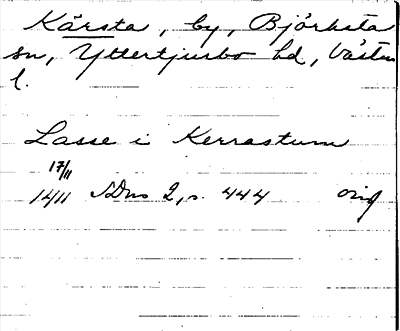 Kärsta, by, Björksta
sn, Yttertjurbo hd, Västm
l.
Lasse i Kerrastum
17/11
1411 SDns 2, s. 444 orig